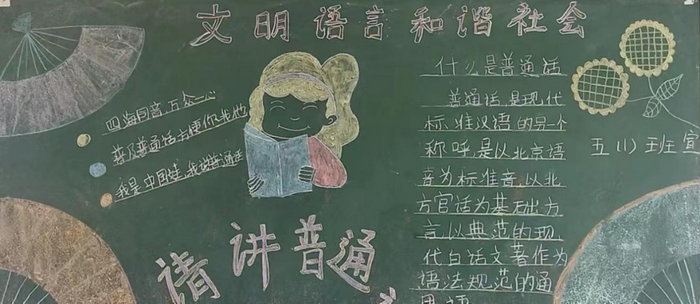 文明语言和谐社会
四海同音,万众一心
普及普通话方便你我他
我是中国娃,我讲普通话
请讲普通
什么是普通话
普通话,是现代
标准汉语的另一个
称呼,是以北京语
音为标准音,以北
方官话为基础方
言,以典范的现
代白话文著作为
语法规范的通
用语
五(1)班宣